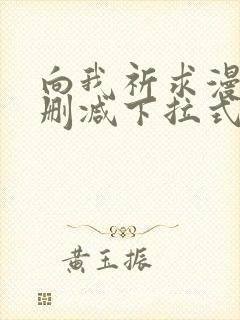 向我祈求漫
删减下拉式
黄玉振